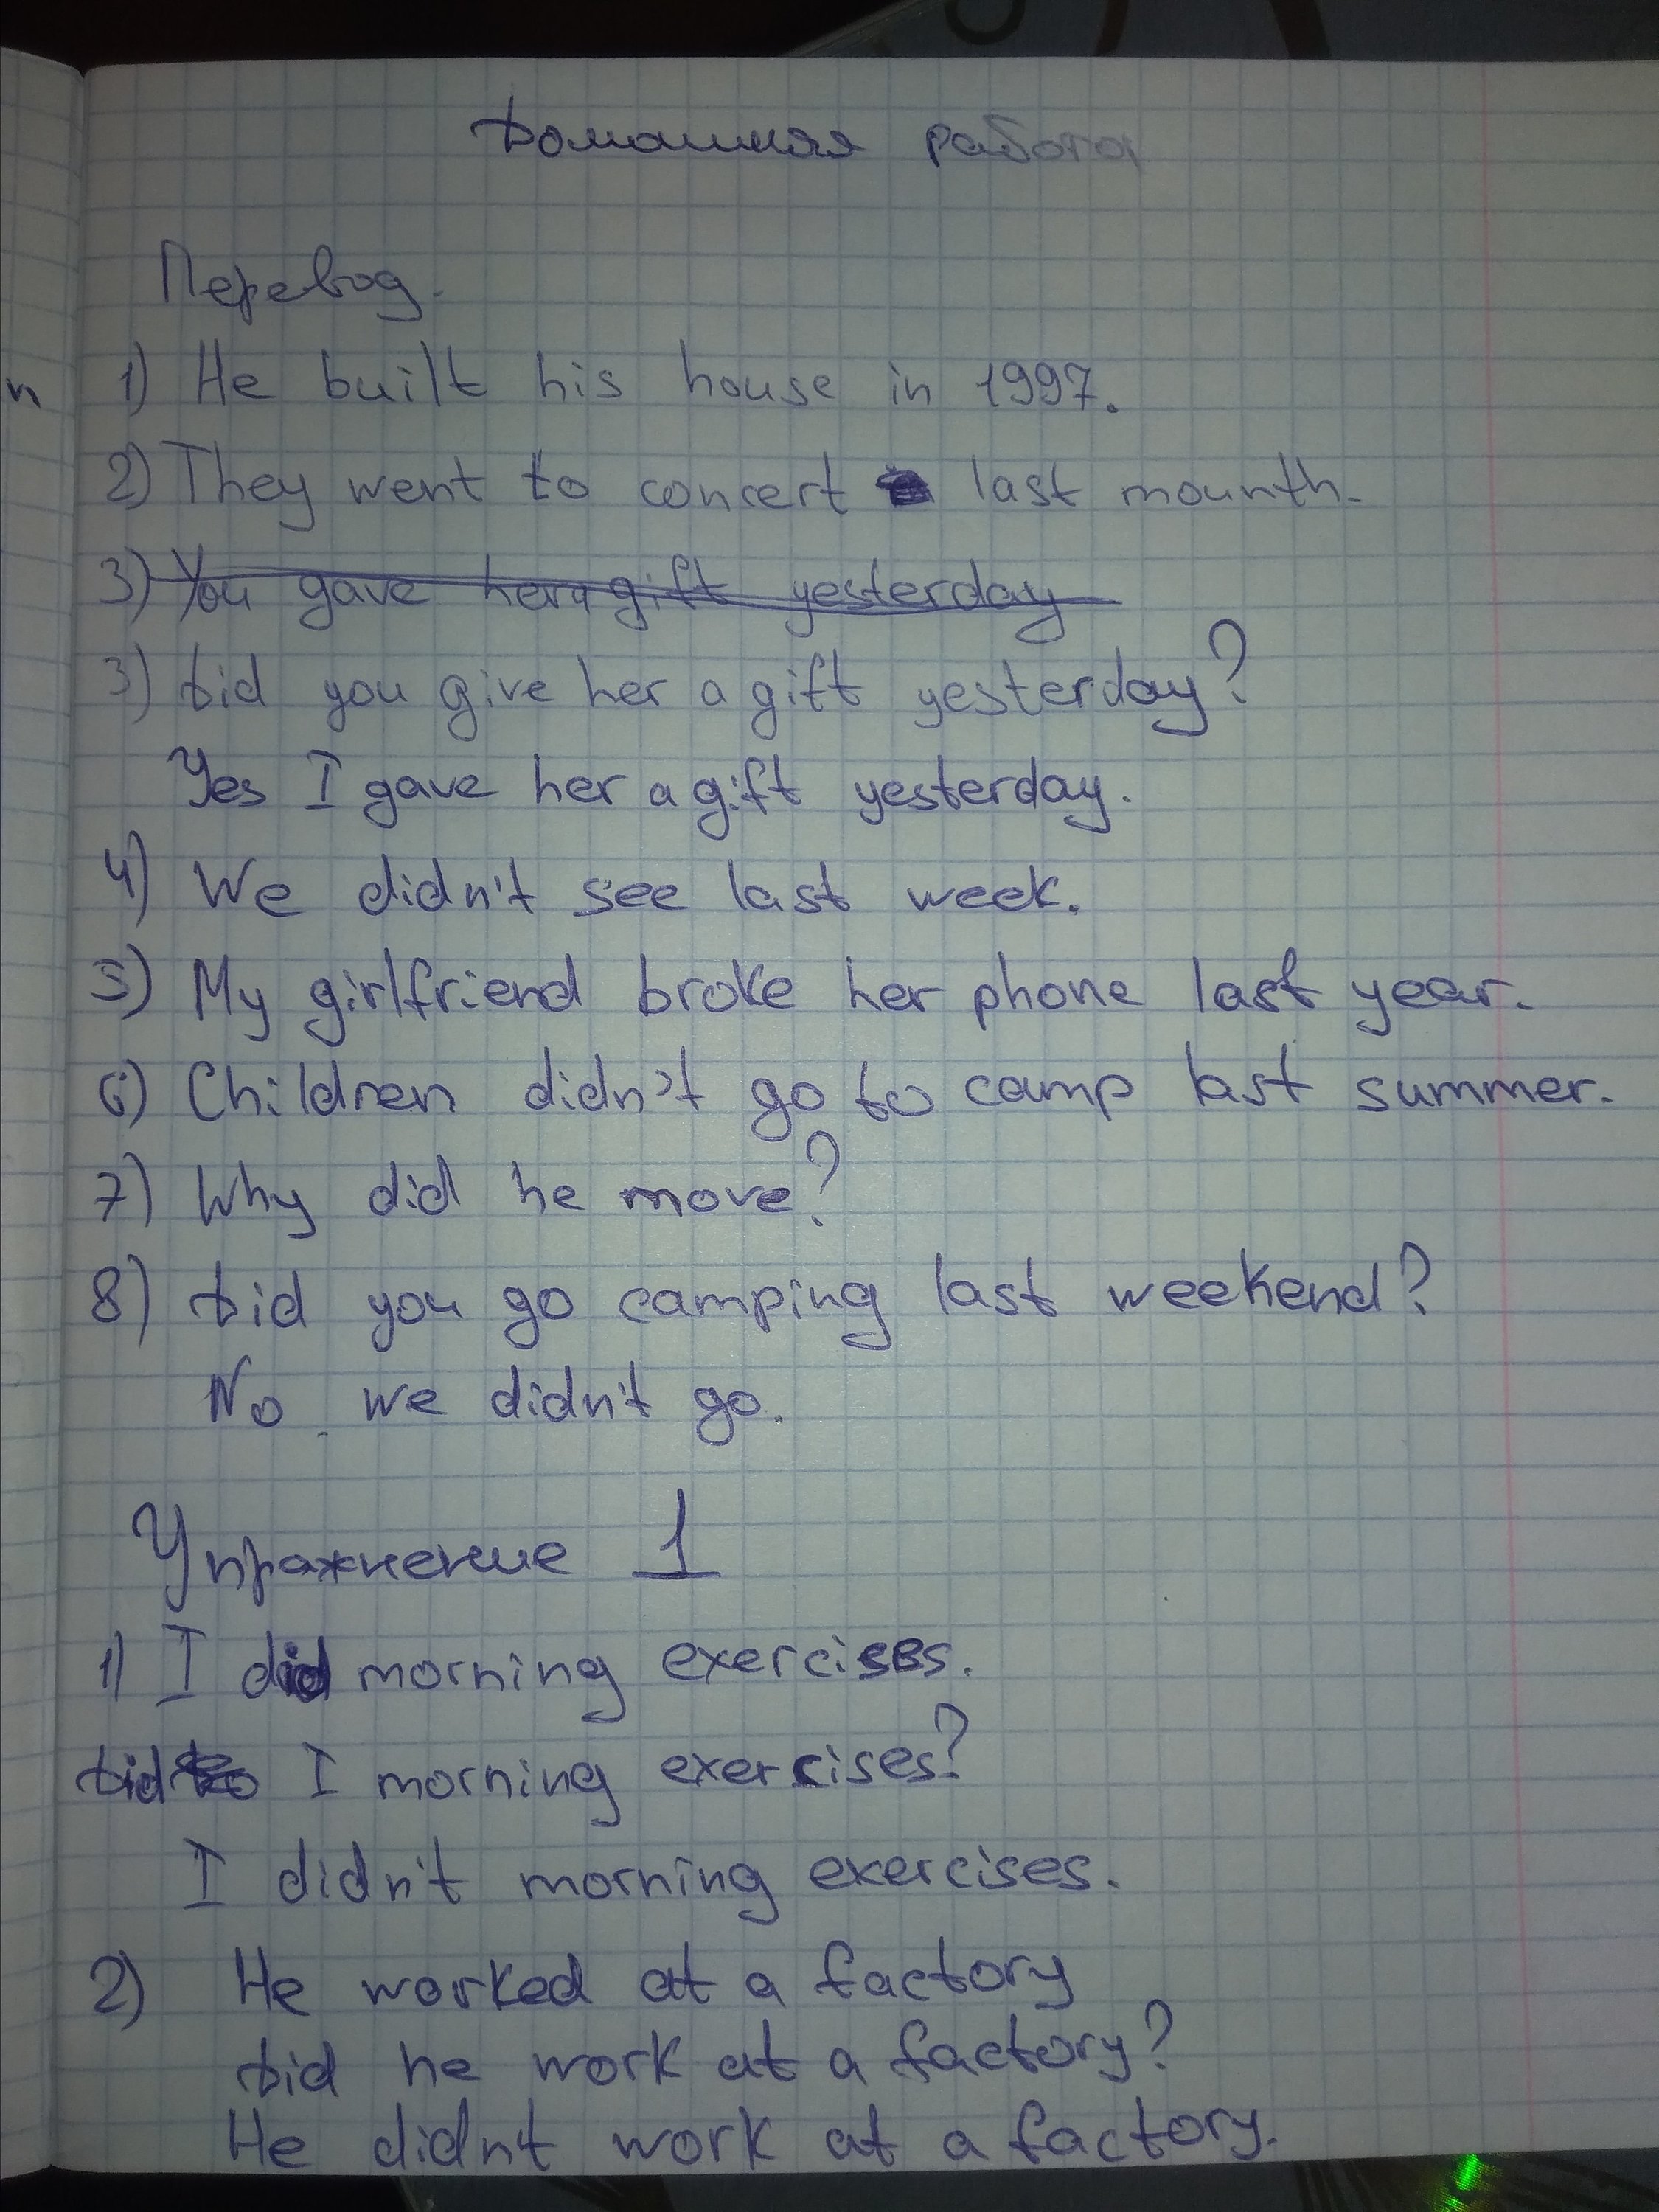 Домашняя работа
Перевод.
n
1) He built his house in 1997.
2) They went to concert last mounth.
3) You gave her a gift yesterday
3) Did you give her a gift yesterday?
Yes I gave her a gift yesterday.
4) We didn't see last week.
5) My girlfriend broke her phone last year.
6) Children didn't go to camp last summer.
7) Why did he move?
8) Did you go camping last weekend?
No, we didn't go.
Упражнение 1
1) I did morning exercises.
Did I morning exercises?
I didn't morning exercises.
2) He worked at a factory
Did he work at a factory?
He didn't work at a factory.